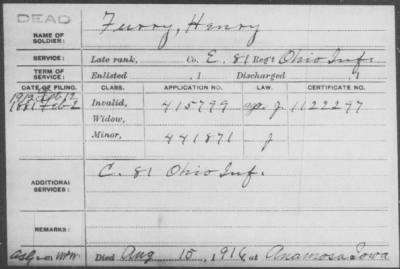 DEAD
NAME OF SOLDIER: Furry, Henry
SERVICE: Late rank, Co. E, 81 Reg't Ohio Inf.
TERM OF SERVICE: Enlisted , 1 Discharged , 1
DATE OF FILING. CLASS. APPLICATION NO. LAW. CERTIFICATE NO.
1912
1881 Feb 2 Invalid, 415799 J 1122297
Widow,
Minor, 441871 J
ADDITIONAL SERVICES: C. 81 Ohio Inf.
REMARKS:
Died Aug 15, 1916, at Anamosa Iowa